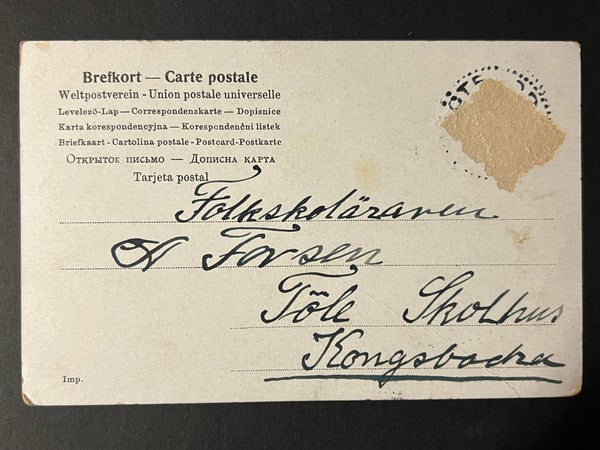 Brefkort — Carte postale
Weltpostverein - Union postale universelle
Levelező-Lap — Correspondenzkarte — Dopisnice
Karta korespondencyjna — Korespondenční lístek
Briefkaart - Cartolina postale - Postcard-Postkarte
Открытое письмо — Дописна карта
Tarjeta postal
Folkskoläraren
A Forsen
Töle Skolhus
Kongsbacka
Imp.